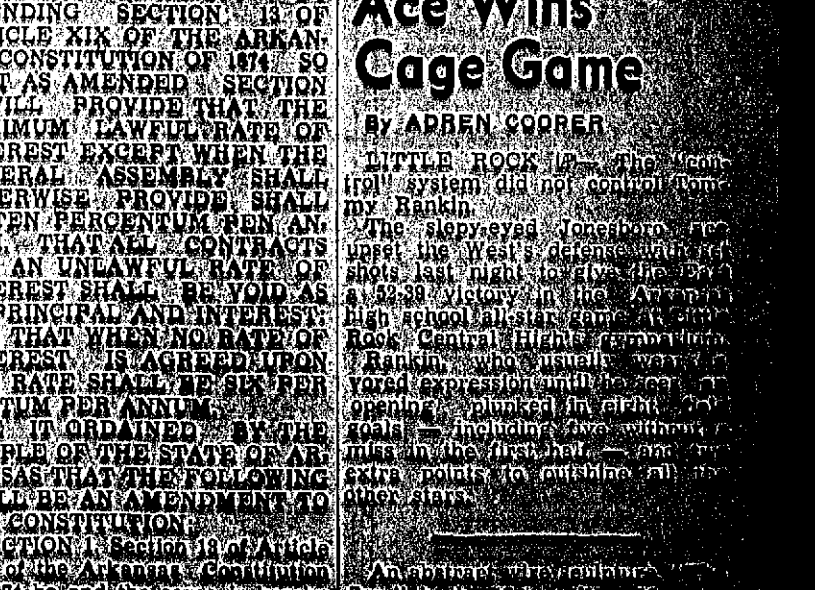 NDING SECTION 13 OF
ICLE XIX OF THE ARKAN-
CONSTITUTION OF 1874 SO
T AS AMENDED SECTION
ILL PROVIDE THAT THE
IMUM LAWFUL RATE OF
EREST EXCEPT WHEN THE
ERAL ASSEMBLY SHALL
ERWISE PROVIDE SHALL
TEN PERCENTUM PEN AN-
THAT ALL CONTRACTS
AN UNLAWFUL RATE OF
EREST SHALL BE VOID AS
PRINCIPAL AND INTEREST;
THAT WHEN NO RATE OF
EREST IS AGREED UPON
RATE SHALL BE SIX PER
TUM PER ANNUM.
IT ORDAINED BY THE
PLE OF THE STATE OF AR-
SAS THAT THE FOLLOWING
LL BE AN AMENDMENT TO
CONSTITUTION:
CTION 1. Section 13 of Article
of the Arkansas Constitution
Ace Wins
Cage Game
By ADREN COOPER
LITTLE ROCK (AP)— The "con-
trol" system did not control Tom-
my Rankin.
The slepy-eyed Jonesboro ace
upset the West's defense with set
shots last night to give the East
a 52-39 victory in the Arkansas
high school all-star game at Little
Rock Central High's gymnasium.
Rankin, who usually wears a
vored expression until he sees an
opening, plunked in eight field
goals — including five without a
miss in the first half — and
extra points to outshine all the
other stars.
An abstract wire sculpture